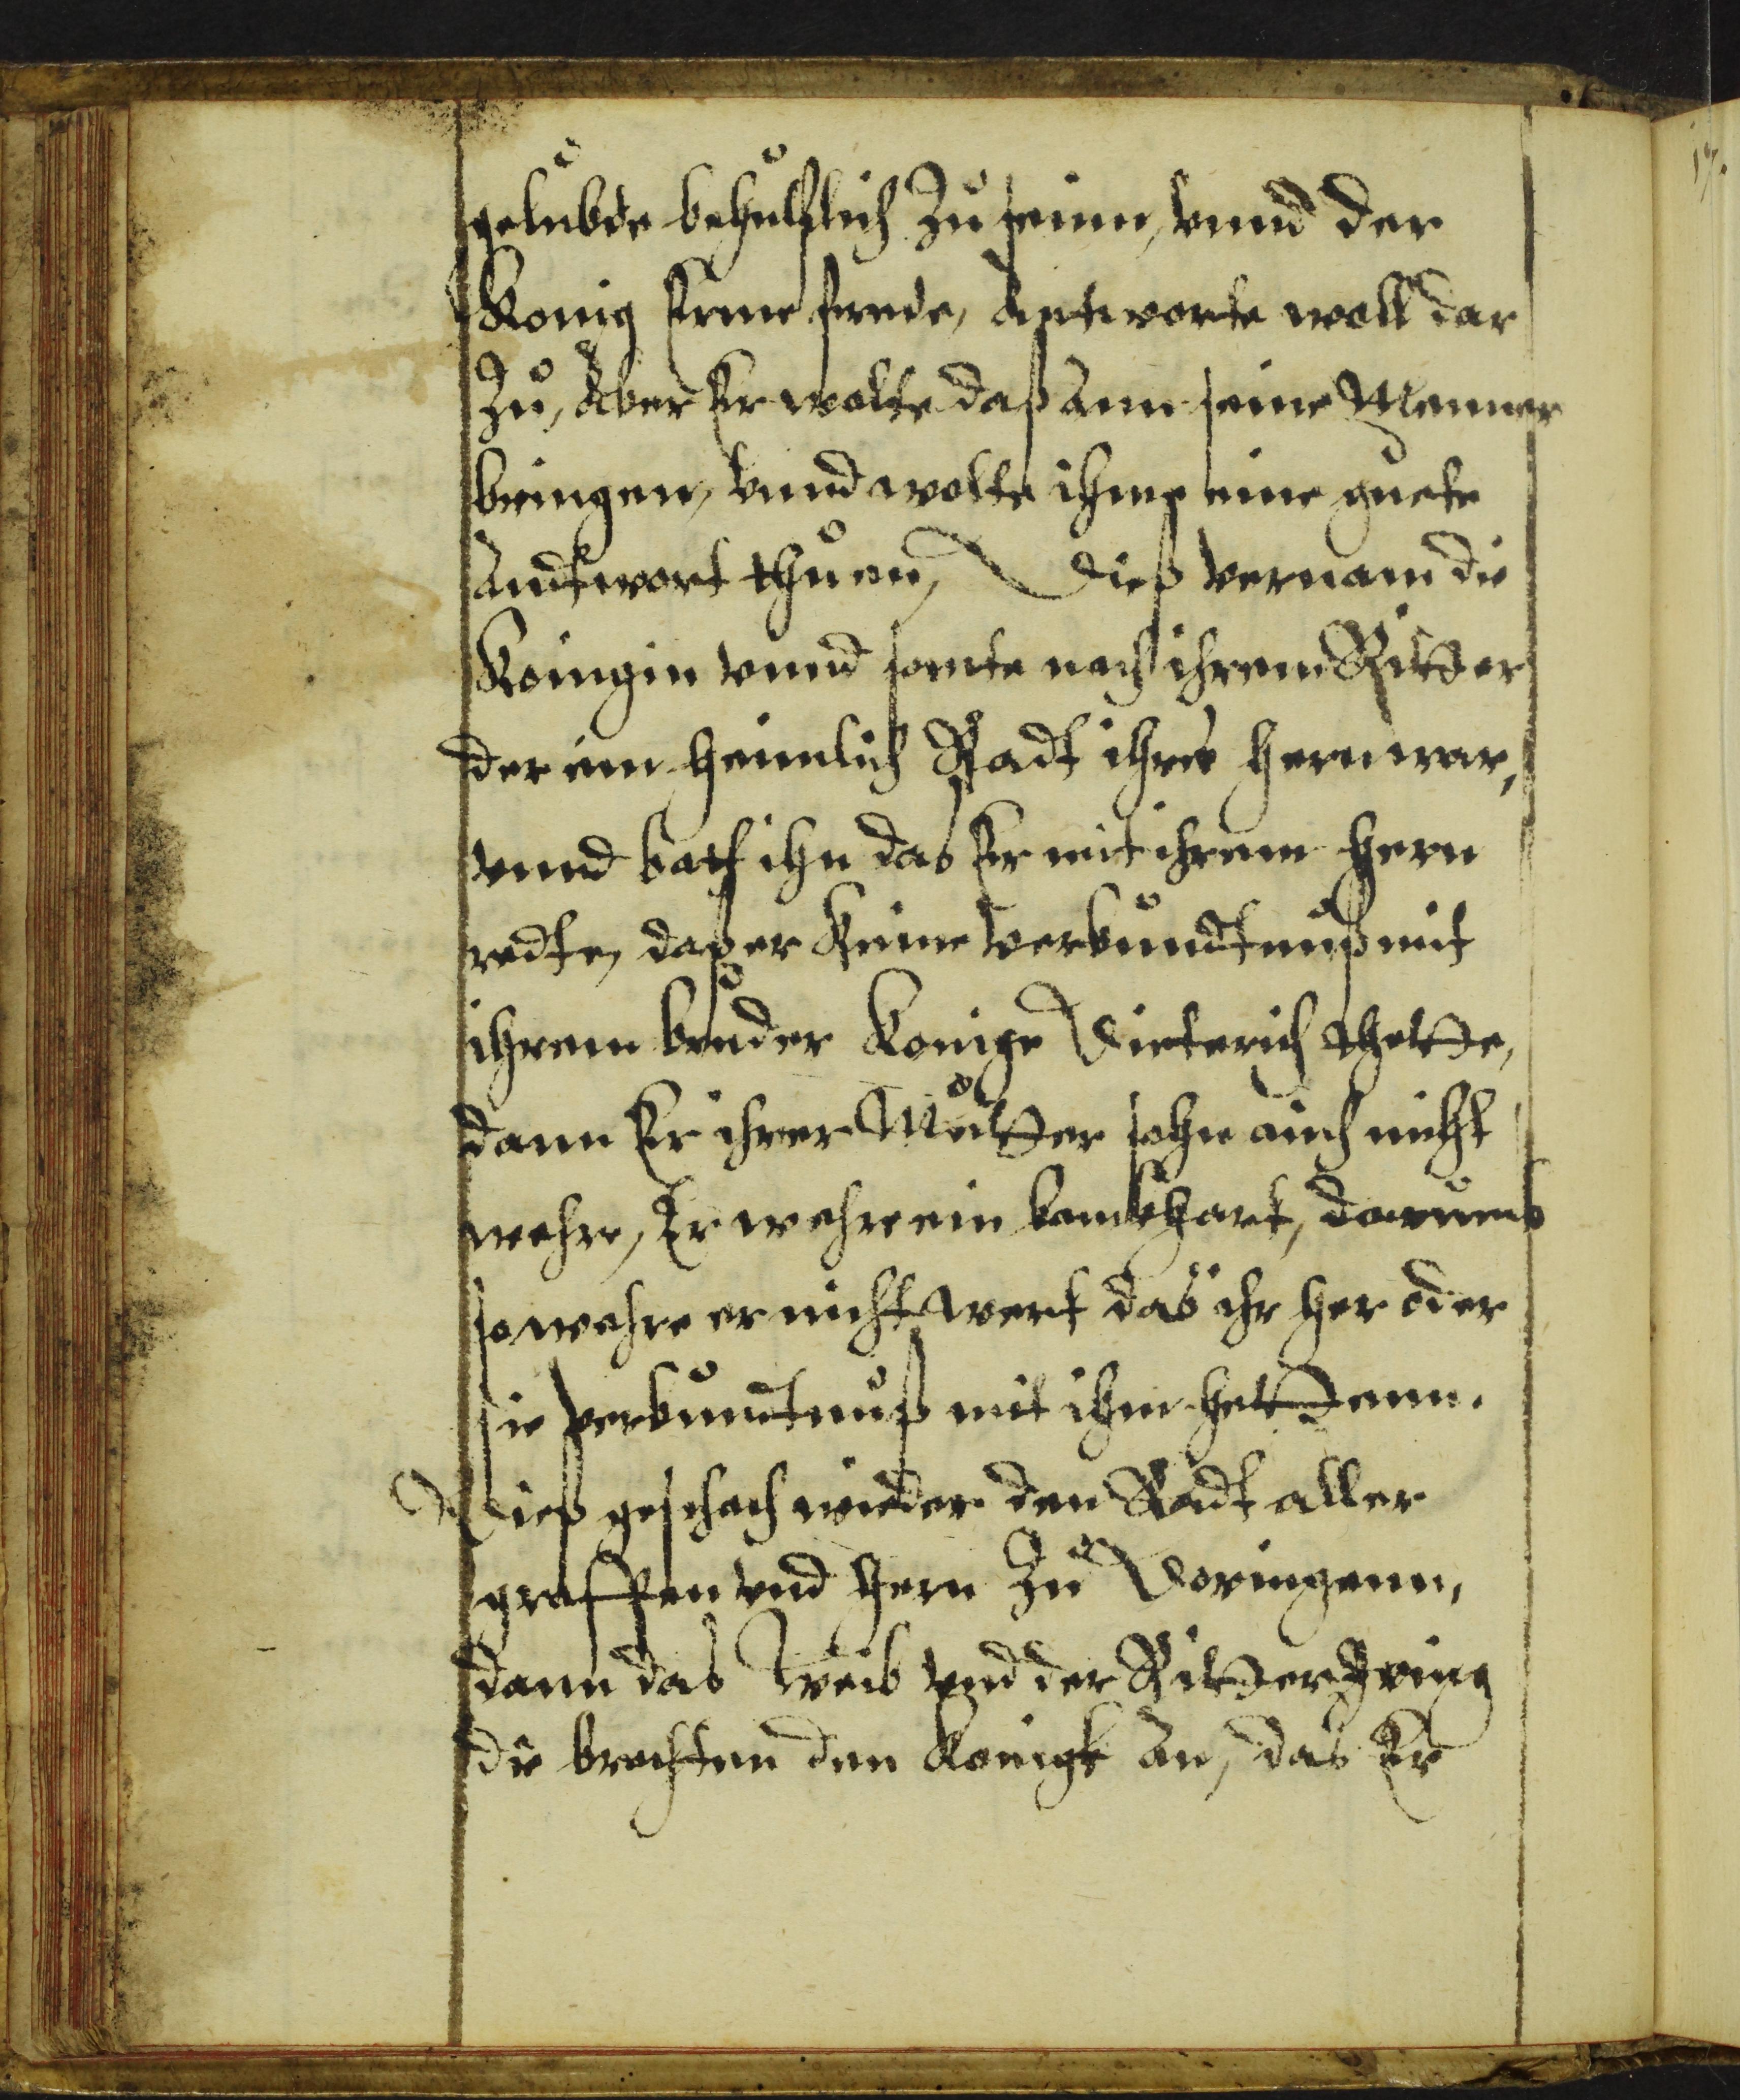 gelubde behulflich zu seinn, vnnd der
Konig Ermefrede, Antworte woll dar
zu, Aber Er wolte daß ann seine Menner
bringen, vnnd wolte ihme eine guete
Andtwort thuen, Dieß vernam die
Koingin vnnd sante nach ihrem Ritter
der ein heimlich Radt ihres hern war,
vnnd bath ihn das Er mit ihrem Hern
redte, daß er keine verbundtnuß mit
ihrem bruder Konige Dieterich thette,
dann Er ihrer Mutter sohn auch nicht
wehre, Er wehre ein banckhart, darumb
so wehre er nicht wert das ihr her oder
sie verbundtnuß mit ihm hettenn.
Dieß geschach wieder den Radt aller
graffen vnd Hern zu Doringenn,
dann das Weib vnd der Ritter Iring
die brachten den Konigk an, das Er
19.